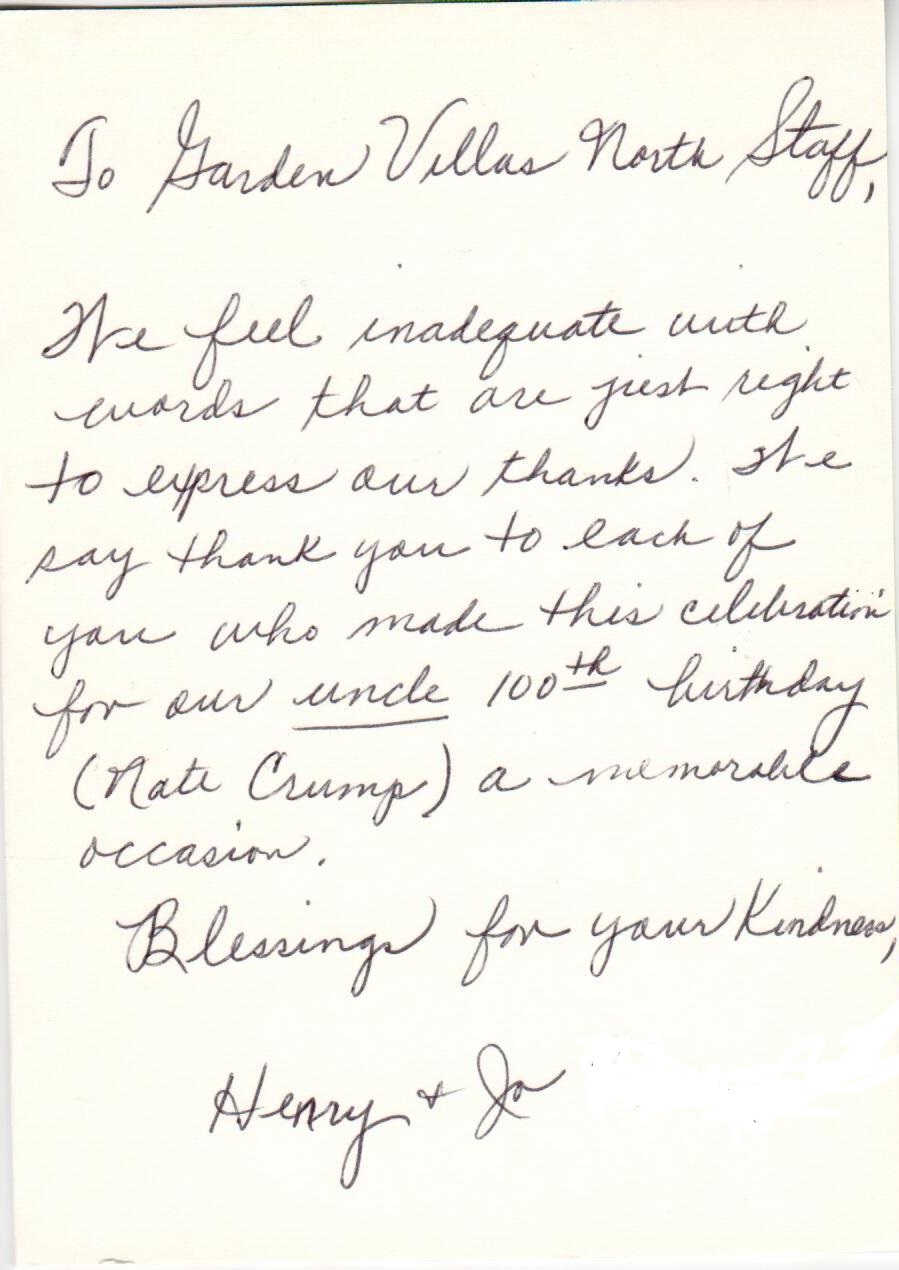 To Garden Villas North Staff,
We feel inadequate with
words that are just right
to express our thanks. We
say thank you to each of
you who made this celebration
for our uncle 100th birthday
(Nate Crump) a memorable
occasion.
Blessings for your Kindness,
Henry + Jo